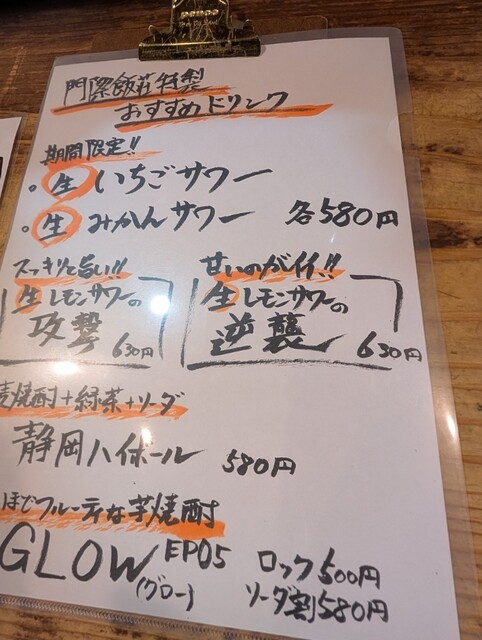 門際飯荘特製
おすすめドリンク
期間限定!!
生 いちごサワー
生 みかんサワー 各580円
スッキリと旨い!!
生レモンサワーの
攻撃 630円
せいのがイイ!!
生レモンサワーの
逆襲 630円
麦焼酎+緑茶+ソーダ
静岡ハイボール 580円
ほどフルーティな芋焼酎
GLOW EP05 ロック500円
(グロー) ソーダ割580円